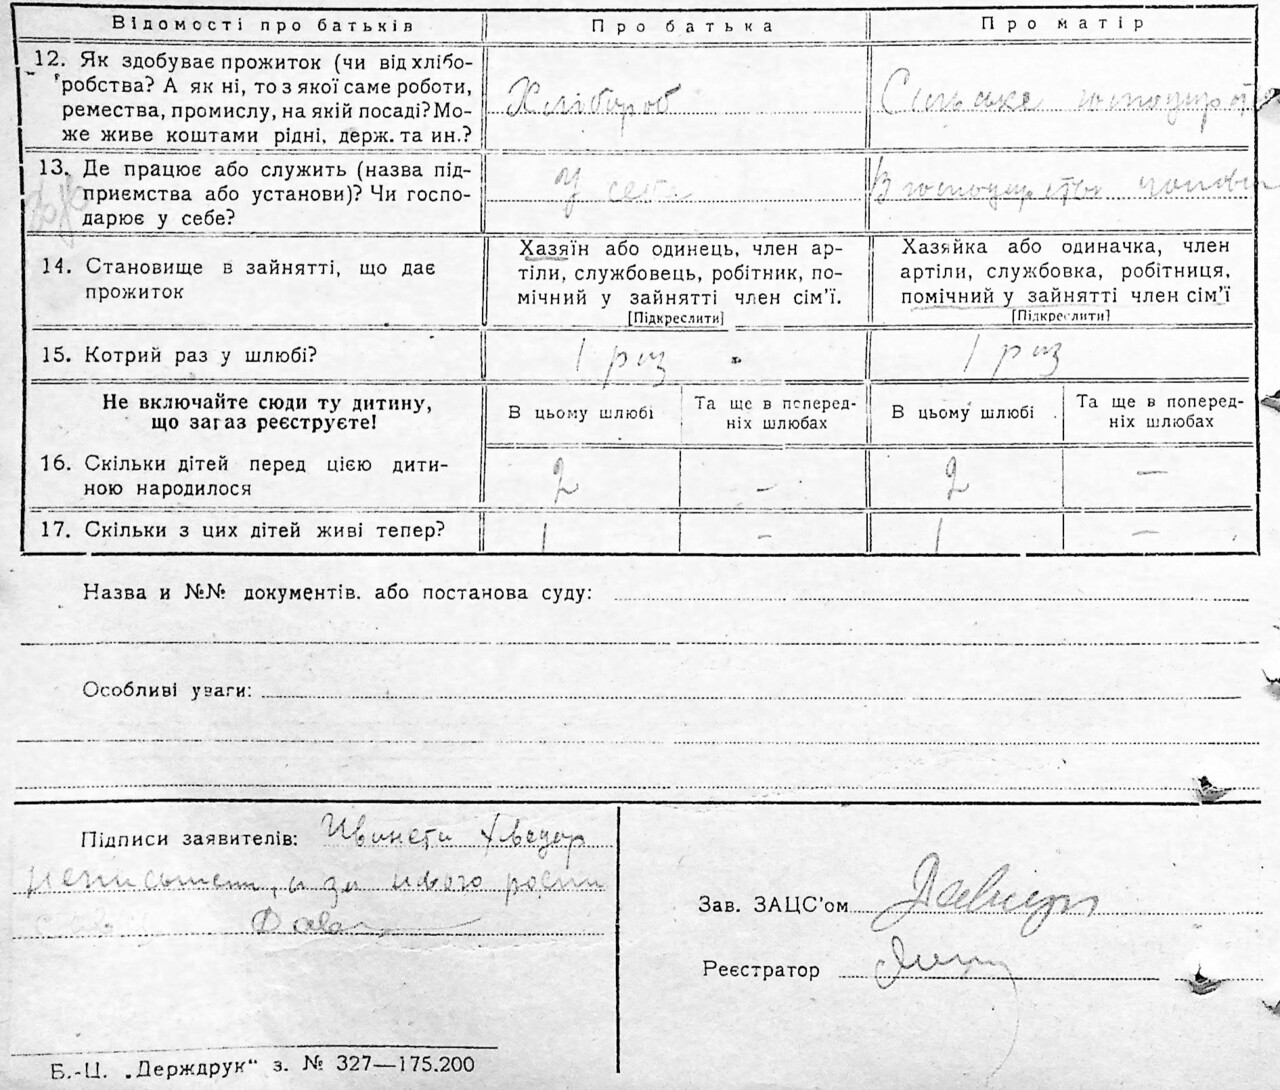 Відомості про батьків Про батька Про матір
12. Як здобуває прожиток (чи від хлібо-
робства? А як ні, то з якої саме роботи,
ремества, промислу, на якій посаді? Мо-
же живе коштами рідні, держ. та ин.?
Хлібороб
Сільське
13. Де працює або служить (назва під-
приємства або установи)? Чи госпо-
дарює у себе?
У себе
В господарстві
14. Становище в зайнятті, що дає
прожиток
Хазяїн або одинець, член ар-
тіли, службовець, робітник, по-
мічний у зайнятті член сім'ї.
[Підкреслити]
Хазяйка або одиначка, член
артіли, службовка, робітниця,
помічний у зайнятті член сім'ї
[Підкреслити]
15. Котрий раз у шлюбі? 1 раз 1 раз
Не включайте сюди ту дитину,
що загаз реєструєте!
В цьому шлюбі
Та ще в попередніх шлюбах
В цьому шлюбі
Та ще в поперед-
ніх шлюбах
16. Скільки дітей перед цією дити-
ною народилося
2 - 2 -
17. Скільки з цих дітей живі тепер? 1 - 1 -
Назва и №№ документів. або постанова суду:
Особливі уваги:
Підписи заявителів: Хведор
за
Зав. ЗАЦС'ом
Реєстратор
Б.-Ц. „Держдрук“ з. № 327—175.200